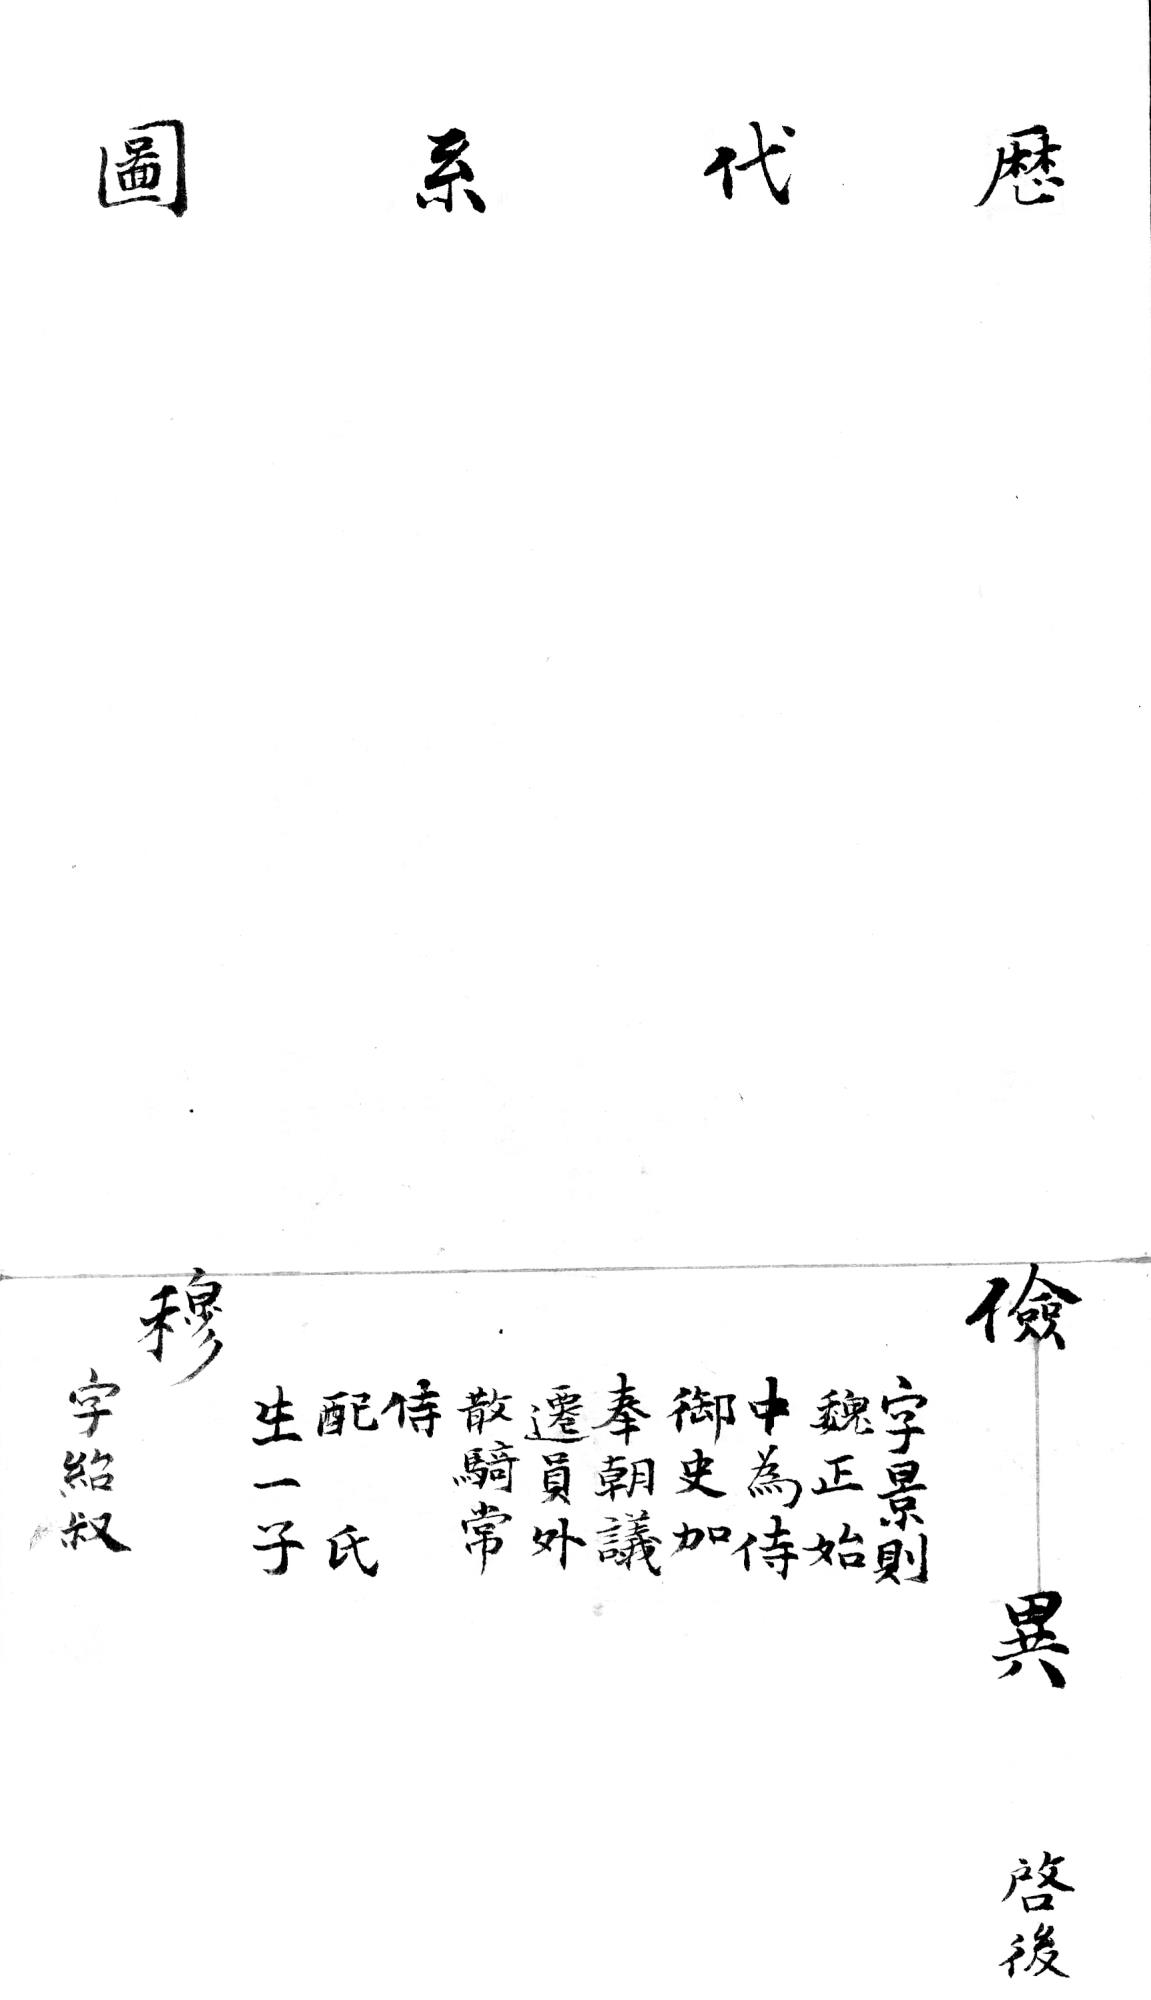 歴代系圖
儉
異
啓後
字景則
魏正始
中為侍
御史加
奉朝議
遷員外
散騎常
侍
配 氏
生一子
穆
字紹叔